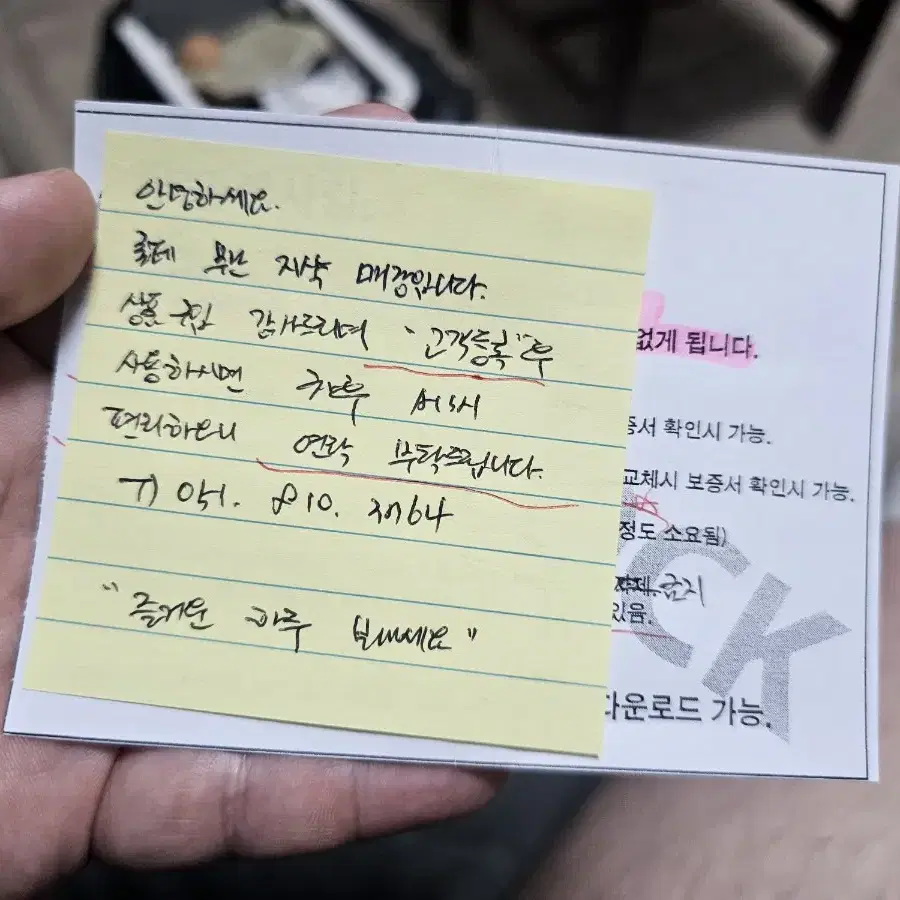 안녕하세요.
롯데 부산 지샥 매장입니다.
상품 구입 감사드리며 "고객등록"후
사용하시면 차후 AS시
편리하오니 연락 부탁드립니다.
810.
"즐거운 하루 보내세요"
없게 됩니다.
증서 확인시 가능.
교체시 보증서 확인시 가능.
정도 소요됨)
금지
있음.
다운로드 가능.
CK